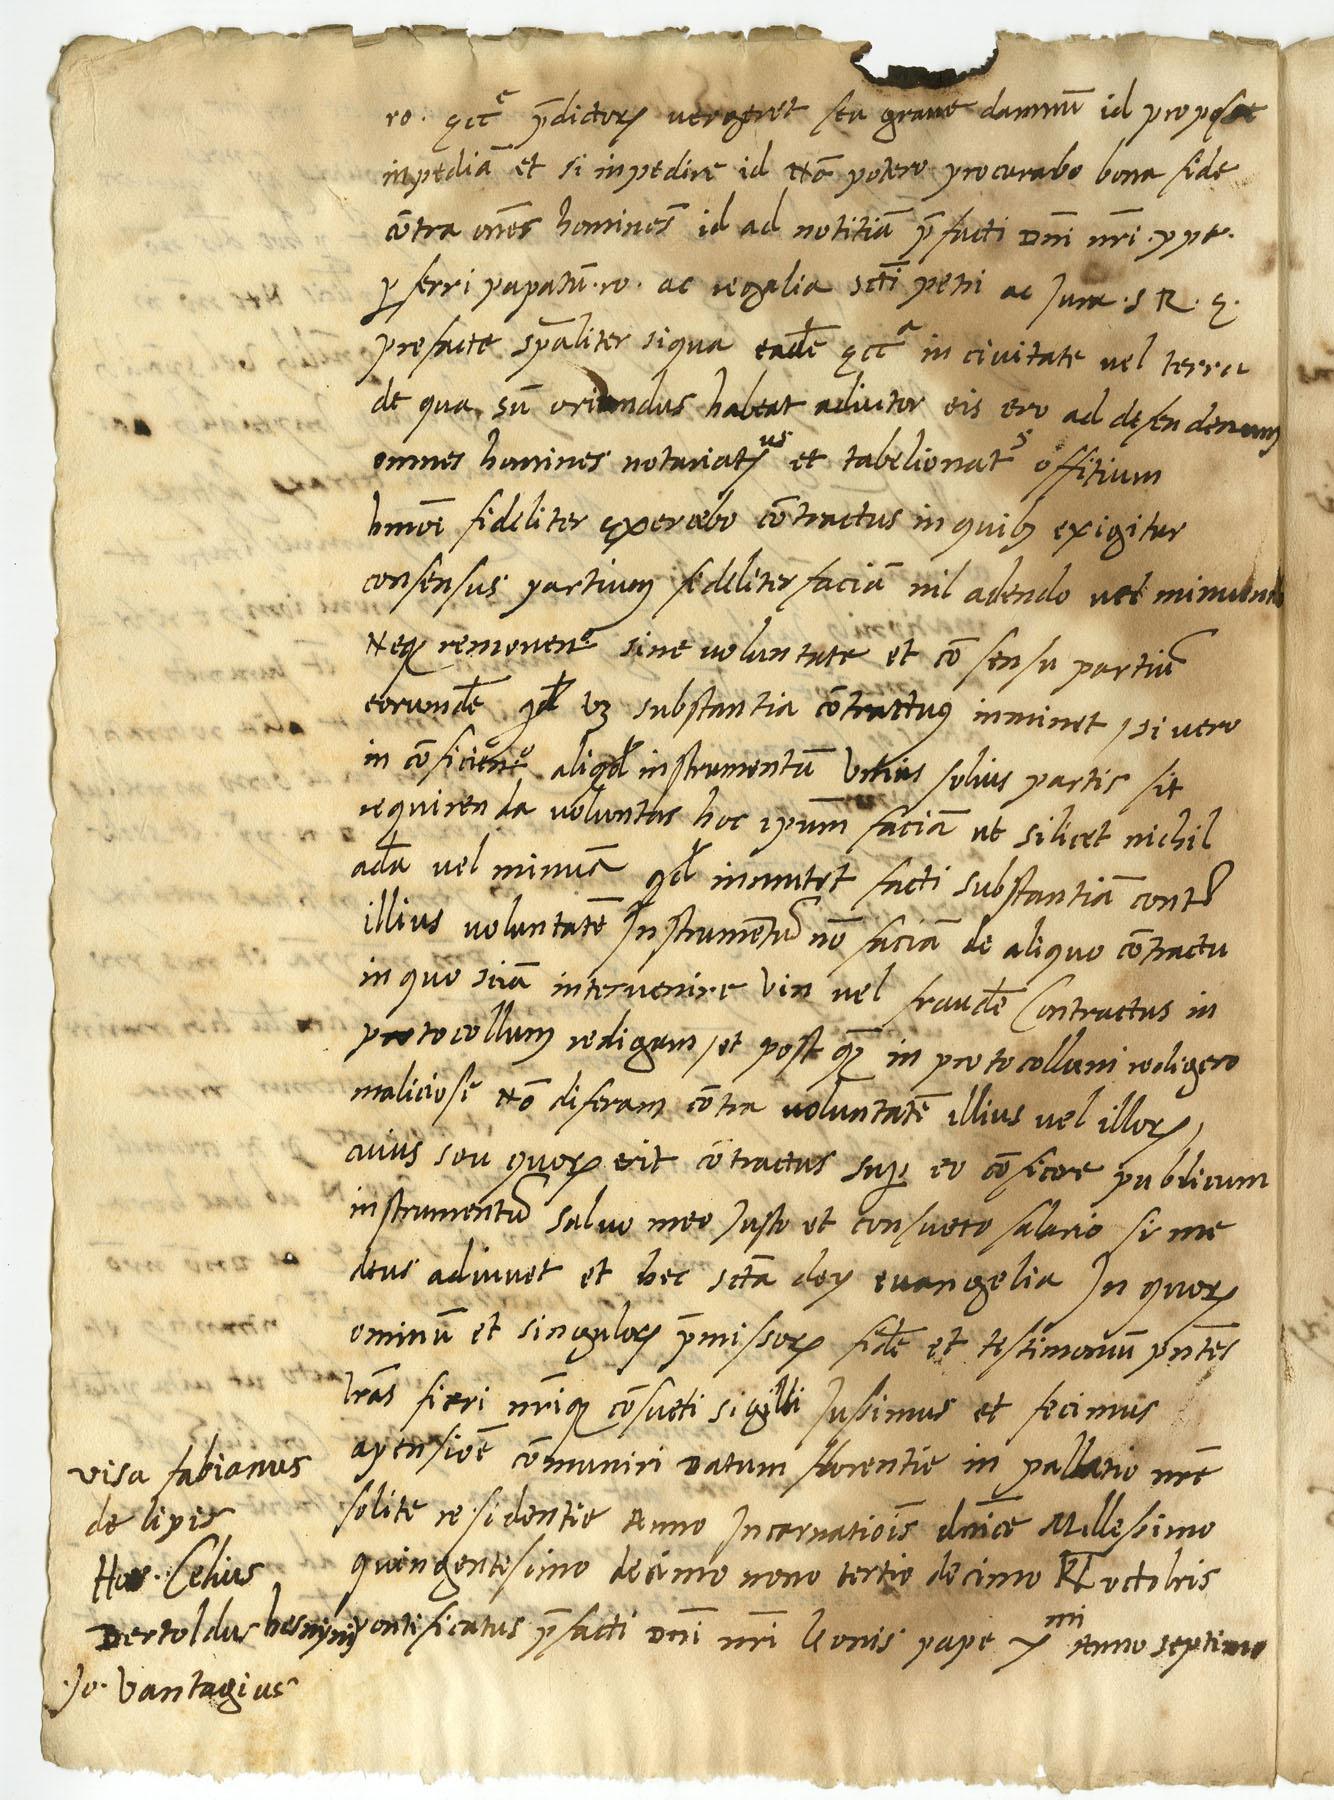 ro. ęccᵉ p̄dictoꝝ vergeret seu graue damnū id pro posse
inpediā et si inpedire id nō potero procurabo bona fide
cōtra om̄es homines id ad notitiā p̄facti dn̄i nr̄i .ppe.
ꝑferri papatū .ro. ac regalia sct̄i petri ac Jura .s R. ę.
prefacte spāliter siqua eadē ęccᵃ in civitate vel terra
de qua sū oriundus habeat adiutor eis ero ad defendendum
omnes homines notariatᵘˢ et tabelionatˢ offitium
hmōi fideliter exercebo cōtractus in quibꝫ exigitur
consensus partium fideliter faciā nil adendo vel minuendo
Neqꝫ removenᵒ sine voluntate et cōsensu partiū
eorundē qd̄ vꝫ substantia cōtractus inminet, si vero
in cōficienᵒ aliqd̄ instrumentū Unius solius partis sit
requirenda voluntas hoc ipsum̄ faciā ut silicet nichil
adā vel minuā qd̄ inmutet facti substantiā contᵃ
illius voluntatē Instrumentū nō faciā de aliquo cōtractu
in quo sciā intervenire vin vel fraudē Contractus in
protocollum redigam, et post qꝫ in protocollum redigero
maliciose nō diferam cōtra voluntatē illius vel illoꝝ,
cuius seu quoꝝ erit cōtractus suꝑ eo cōficere publicum
instrumentū salvo meo Justo et consueto salario si me
deus adiuvet et hec sctā dei evangelia In quoꝝ
ominū et singuloꝝ p̄missoꝝ fidē et testimoniū pn̄tes
lrās fieri nr̄iqꝫ cōsueti sigilli Jussimus et fecimus
apensiōe cōmuniri Datum florentie in pallatio nrē
solite residentie Anno Incarnatiōis dn̄ice Millessimo
quingentesimo decimo nono tertio decimo Kl̄ octobris
pontificatus p̄facti Dn̄i nr̄i leonis pape Xᵐⁱ Anno septimo
visa fabianus
de lipis
Celius
Bertoldus
.Jo. Vantagius